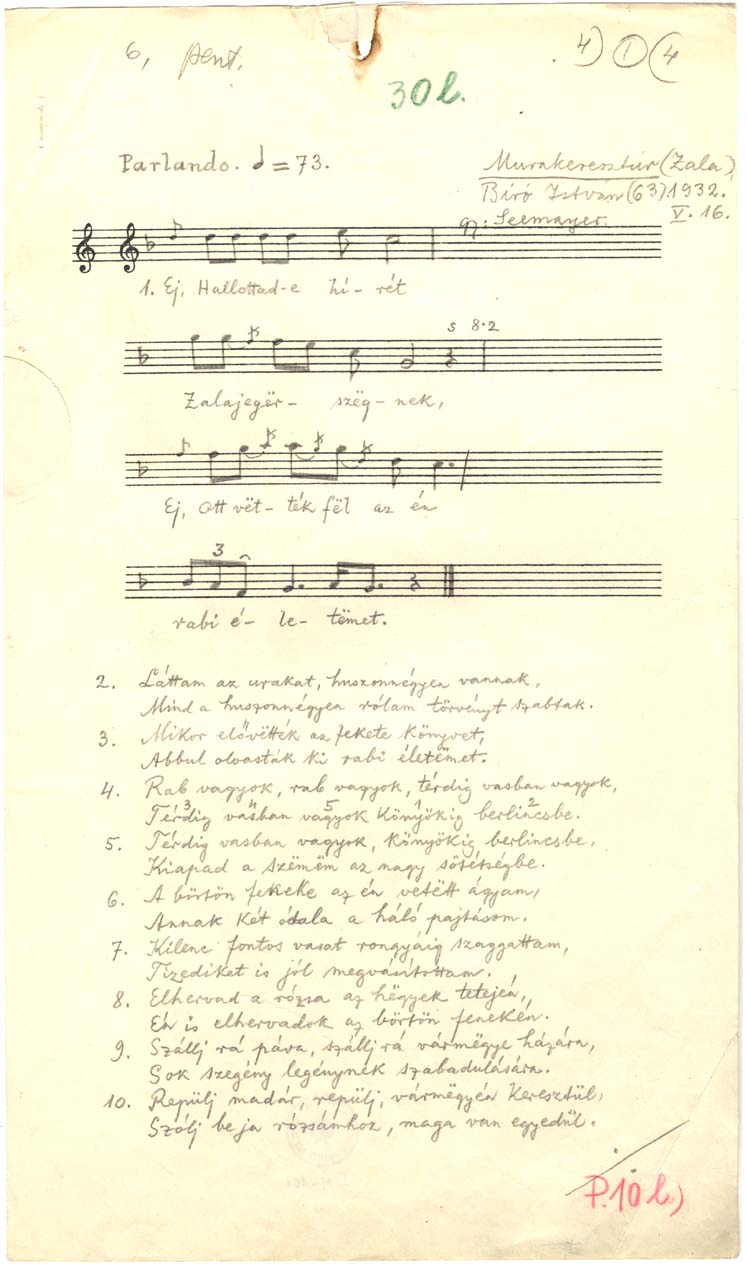 6, pent.
4) I (4
30 l.
Parlando. = 73.
Murakeresztúr (Zala),
Bíró István (63) 1932.
gy: Seemayer. V. 16.
1. Ej, Hallottad-e hí- rét
5 8·2
Zalajegër- szëg- nek,
Ej, Ott vët- ték fël az én
3
rabi é- le- tëmet.
2. Láttam az urakat, huszonnégyen vannak,
Mind a huszonnégyen rólam törvényt szabtak.
3. Mikor elővëtték az fekete könyvet,
Abbul olvasták ki rabi életëmet.
4. Rab vagyok, rab vagyok, térdig vasban vagyok,
3 4 5 1 2
Térdig vasban vagyok könyökig berlincsbe.
5. Térdig vasban vagyok, könyökig berlincsbe,
Kiapad a szëmëm az nagy sötétségbe.
6. A börtön feneke az én vetëtt ágyam,
Annak két ódala a háló pajtásom.
7. Kilenc fontos vasat rongyáig szaggattam,
Tizediket is jól megvásítottam.
8. Elhervad a rózsa az hëgyek tetején,
Én is elhervadok az börtön fenekén.
9. Szállj rá páva, szállj rá vármëgye házára,
Sok szegény legénynek szabadulására.
10. Repülj madár, repülj, vármëgyén keresztül,
Szólj be ja rózsámhoz, maga van egyedül.
P. 10 l)